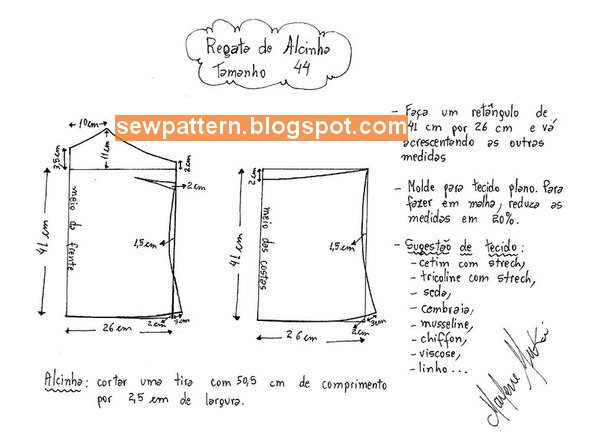 Regata de Alcinha
Tamanho 44
sewpattern.blogspot.com
10cm
3,5cm
11cm
2cm
2cm
41 cm
meio da frente
1,5cm
26 cm
2cm
3cm
2cm
41 cm
meio das costas
1,5cm
26 cm
2cm
3cm
- Faça um retângulo de
41 cm por 26 cm e vá
acrescentando as outras
medidas
- Molde para tecido plano. Para
fazer em malha, reduza as
medidas em 20%.
- Sugestão de tecido:
- cetim com strech,
- tricoline com strech,
- seda,
- cambraia,
- musseline,
- chiffon,
- viscose,
- linho...
Alcinha: cortar uma tira com 50,5 cm de comprimento
por 2,5 cm de largura.
Marlene Mukai